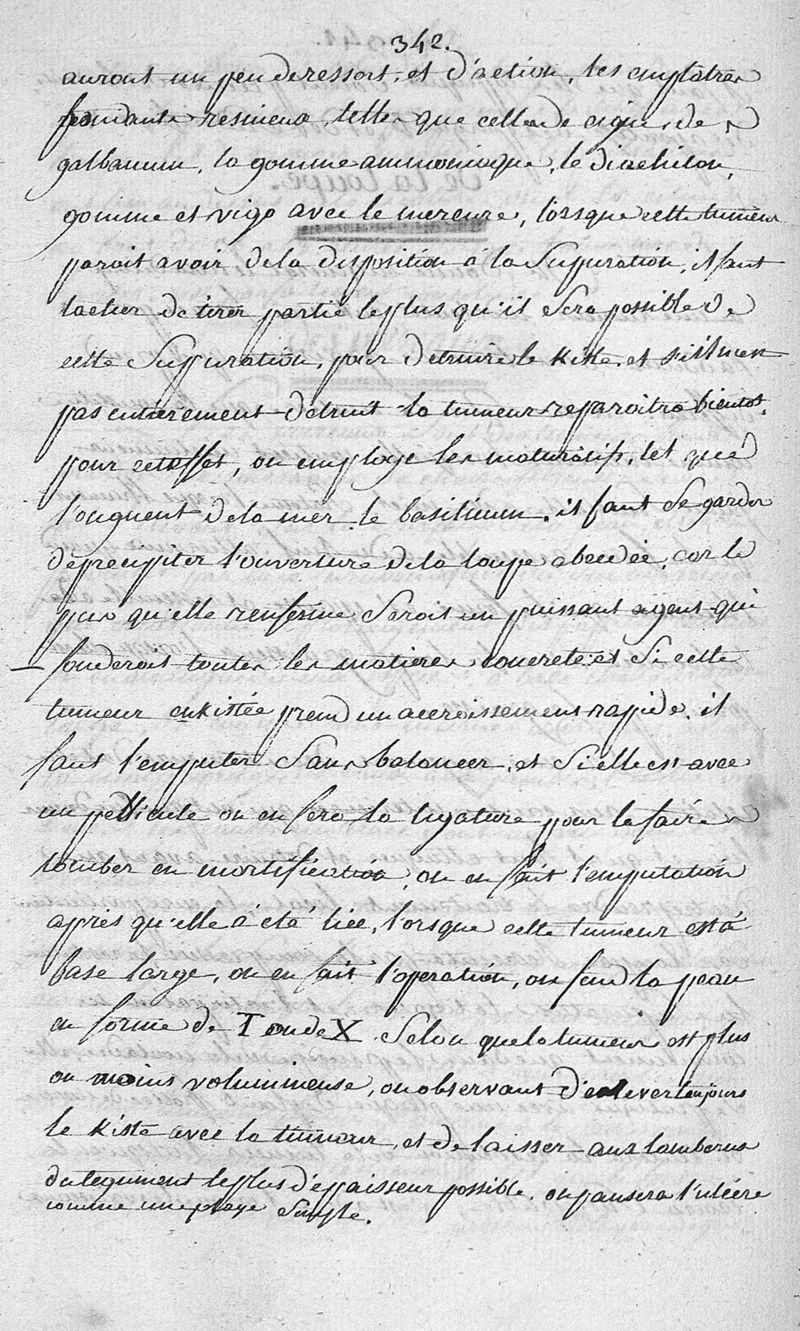 342.
auront un peu de ressort, et d'action, les emplatres
fondants resineux, telles que celle de cigue, de
galbanum, la gomme ammoniaque, le diachilon,
gomme et vigo avec le mercure, lorsque cette tumeur
paroit avoir de la disposition à la Supuration, il faut
tacher de tirer partie le plus qu'il Sera possible de
cette Suppuration, pour detruire le Kiste, et s'il n'est
pas entierement detruit la tumeur reparoitra bientot.
pour cet effet, on employe les maturatifs, tel que
l'onguent de la mer, le basilicum. il faut Se garder
de precipiter l'ouverture de la loupe abcedée, car le
pus qu'elle renferme Serois un puissant agent qui
fonderoit toutes les matieres concretes et Si cette
tumeur enkistée prend un accroissement rapide, il
faut l'emputer Sans balancer, et Si elle est avec
un petticule on en fera la ligature pour la faire
tomber en mortification, on en fait l'emputation
après qu'elle à été liée, lorsque cette tumeur est à
base large, on en fait l'operation, on fend la peau
en forme de T ou de X Selon que la tumeur est plus
ou moins volumineuse, on observant d'enlever toujours
le Kiste avec la tumeur, et de laisser aux lambeaux
du tegument le plus d'eppaisseur possible. on pansera l'ulcére
comme une playe Simple.